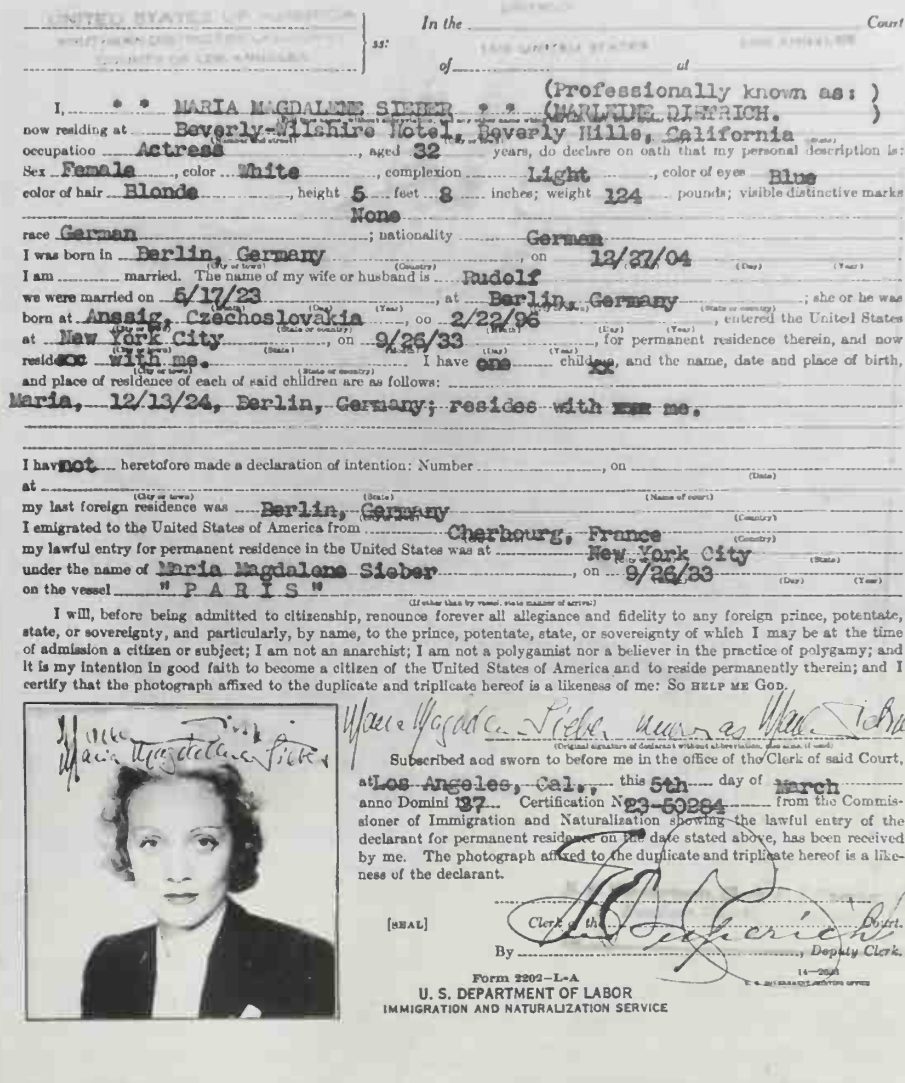 UNITED STATES OF AMERICA
In the Court
ss:
of at
(Professionally known as: )
I, * * MARIA MAGDALENE SIEBER * * (MARLEINE DIETRICH. )
now residing at Beverly-Wilshire Hotel, Beverly Hills, California
occupation Actress, aged 32 years, do declare on oath that my personal description is:
Sex Female, color White, complexion Light, color of eyes Blue
color of hair Blonde, height 5 feet 8 inches; weight 124 pounds; visible distinctive marks
None
race German; nationality German
I was born in Berlin, Germany, on 12/27/04
(City or town) (Country) (Day) (Year)
I am married. The name of my wife or husband is Rudolf
we were married on 5/17/23, at Berlin, Germany; she or he was
(Day) (Year) (State or country)
born at Anssig, Czechoslovakia, on 2/22/96, entered the United States
(City or town) (State or country) (Day) (Year)
at New York City, on 9/26/33, for permanent residence therein, and now
(City or town) (State) (Day) (Year)
resid with me. I have one child, and the name, date and place of birth,
(City or town) (State or country)
and place of residence of each of said children are as follows:
Maria, 12/13/24, Berlin, Germany; resides with me.
I have not heretofore made a declaration of intention: Number, on
(Date)
at
(City or town) (State) (Name of court)
my last foreign residence was Berlin, Germany
(Country)
I emigrated to the United States of America from Cherbourg, France
(Country)
my lawful entry for permanent residence in the United States was at New York City
(State)
under the name of Maria Magdalene Sieber, on 9/26/33
(Day) (Year)
on the vessel "PARIS"
(If other than by vessel, state manner of arrival)
I will, before being admitted to citizenship, renounce forever all allegiance and fidelity to any foreign prince, potentate,
state, or sovereignty, and particularly, by name, to the prince, potentate, state, or sovereignty of which I may be at the time
of admission a citizen or subject; I am not an anarchist; I am not a polygamist nor a believer in the practice of polygamy; and
it is my intention in good faith to become a citizen of the United States of America and to reside permanently therein; and I
certify that the photograph affixed to the duplicate and triplicate hereof is a likeness of me: SO HELP ME GOD.
Maria Magdalena Sieber
Maria Magdalena Sieber
(Original signature of declarant without abbreviation, also alias, if used)
Subscribed and sworn to before me in the office of the Clerk of said Court,
at Los Angeles, Cal., this 5th day of March
anno Domini 137 Certification No 23-50284 from the Commis-
sioner of Immigration and Naturalization showing the lawful entry of the
declarant for permanent residence on the date stated above, has been received
by me. The photograph affixed to the duplicate and triplicate hereof is a like-
ness of the declarant.
[SEAL]
Clerk of the Court.
By, Deputy Clerk.
Form 2202-L-A
U. S. DEPARTMENT OF LABOR
IMMIGRATION AND NATURALIZATION SERVICE
U. S. GOVERNMENT PRINTING OFFICE